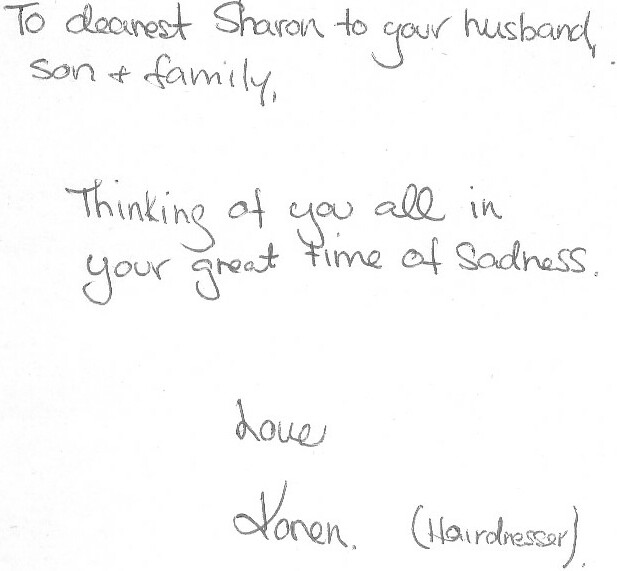 To dearest Sharon to your husband,
son + family,
Thinking of you all in
your great time of Sadness.
Love
Karen. (Hairdresser).